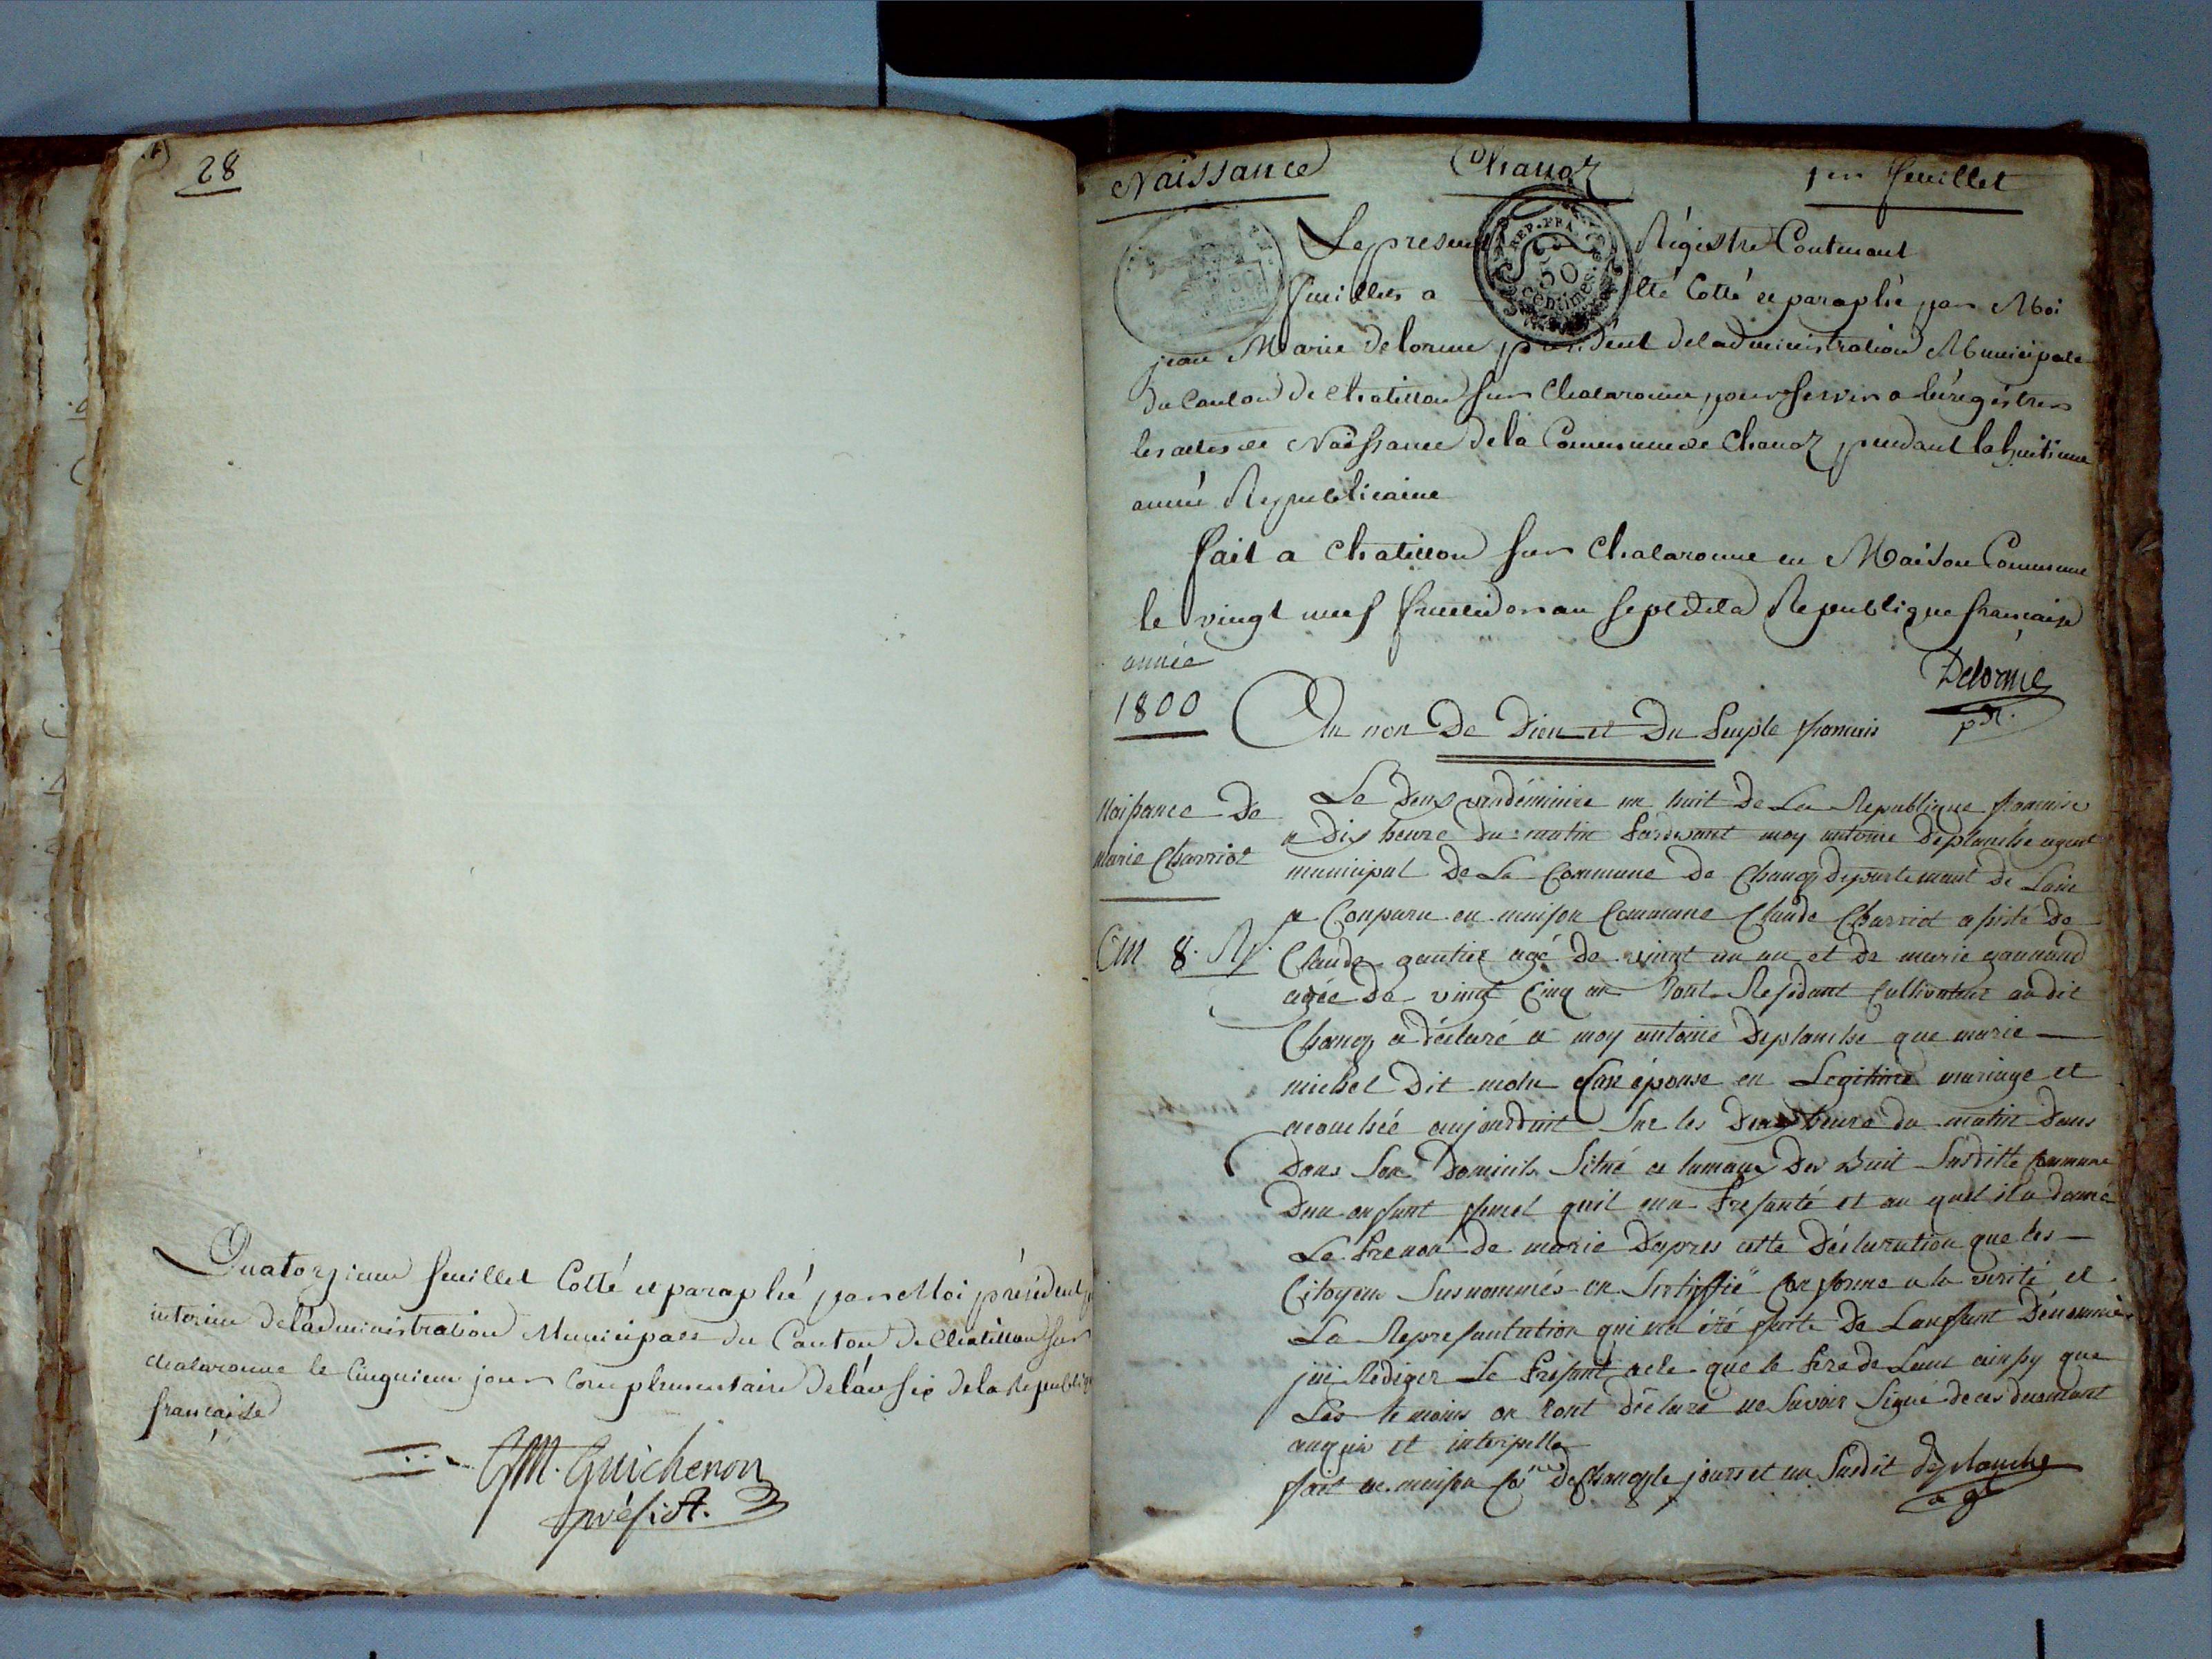 28
Quatorzieme feuillet Cotté et paraphé par Moi président
interim de l'administration Municipale du Canton de Chatillon sur
chalaronne le Cinquieme jour Complementaire de l'an six de la Republi
française
GM. Guichenon
présidt.
Naissance Chanoz 1er feuillet
Le present Régistre Contenant
feuillets a été Cotté et paraphé par Moi
jean Marie Delorme président de l'administration Municipale
du Canton de Chatillon sur Chalaronne, pour servir a enrégistrer
les actes de Naissance de la Commune de Chanoz, pendant la huitieme
année Republicaine
fait a Chatillon sur Chalaronne en Maison Commune
le vingt neuf fructidor an sept de la Republique française
année
1800
Delorme
pt.
Au non De Dieu et Du Peuple francais
Naissance De
marie Charriot
8. R
Le Deux vendémiaire an huit De La Republique francaise
a Dix heure Du matin Pardevant moy antoine Deplanche agent
municipal De La Commune De Chanoz Departemant De Lain
a Conparu en maison Commune Claude Charriot asisté De
Claude gautier agé De vingt un an et De marie
agée De vingt Cinq an Tout Residant Cultivateur audit
Chanoz a Déclaré a moy antoine Deplanche que marie
michel Dit son épouse en Legitime mariage et
acouchée aujourduit Sur les Deux heure du matin Dans
Dans Son Domicile Situé a lamaux Des Buit Susditte Commune
Dun anfant femel quil ma Presanté et au quel il a Donné
Le Prenon De marie Dapres cette Déclaration que les
Citoyens Susnommés on Sertiffié Conforme a la verité et
La Representation qui ma été faite De Lanfant Dénommé
jai Rediger Le Present acte que le Pere de Lanf ainsy que
Les temoins on Tont Déclaré ne Savoir Signé de ces
anquis et interpelle
fait en maison Cone De Chanoz le jours et an Susdit Deplanche
agt